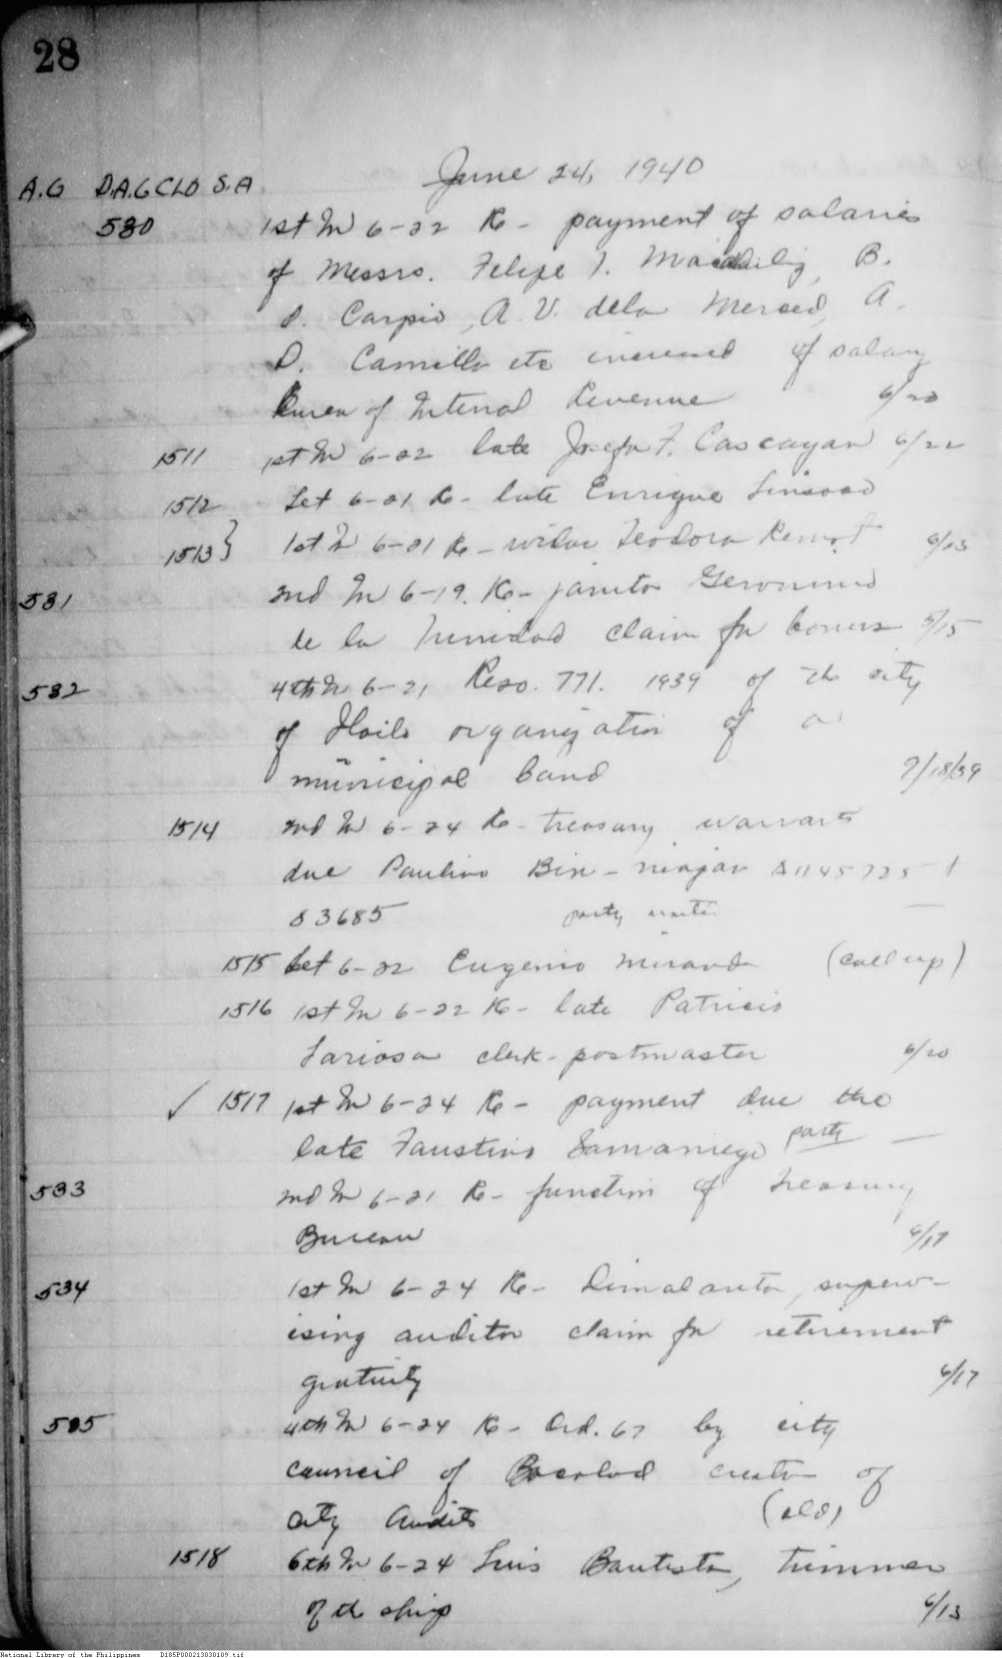 28
June 24, 1940
A.G D.A.G CLO S.A
530 1st In 6-22 Re- payment of salaries
of Messrs. Felipe T. B.
S. Carpio, A. V. dela Merced, A.
D. Camillo etc increased of salary
Bureau of Internal Revenue 6/20
1511 1st In 6-22 late Josefa F. Cascayan 6/22
1512 Let 6-21 Re- late Enrique
1513} 1st In 6-21 Re- widow Teodora 6/13
531 2nd In 6-19. Re- janitor Geronimo
de la Trinidad claim for bonus 5/15
532 4th In 6-21 Reso. 771. 1939 of the city
of Iloilo organization of a
municipal band 7/18/39
1514 2nd In 6-24 Re- treasury warrants
due Paulino Bin-niajan
83685 party
1515 Let 6-22 Eugenio Miranda (call up)
1516 1st In 6-22 Re- late Patricio
Lariosa clerk-postmaster 6/20
✓ 1517 1st In 6-24 Re- payment due the
late Faustino Samaniego party —
533 2nd In 6-21 Re- function of Treasury
Bureau 6/17
534 1st In 6-24 Re- Dimalanta, superv-
ising auditor claim for retirement
gratuity 6/17
535 4th In 6-24 Re- Ord. 67 by city
council of Bacolod creation of
city (old)
1518 6th In 6-24 Luis Bautista, trimmer
of the ship 6/13
National Library of the Philippines D185P000213030109.tif